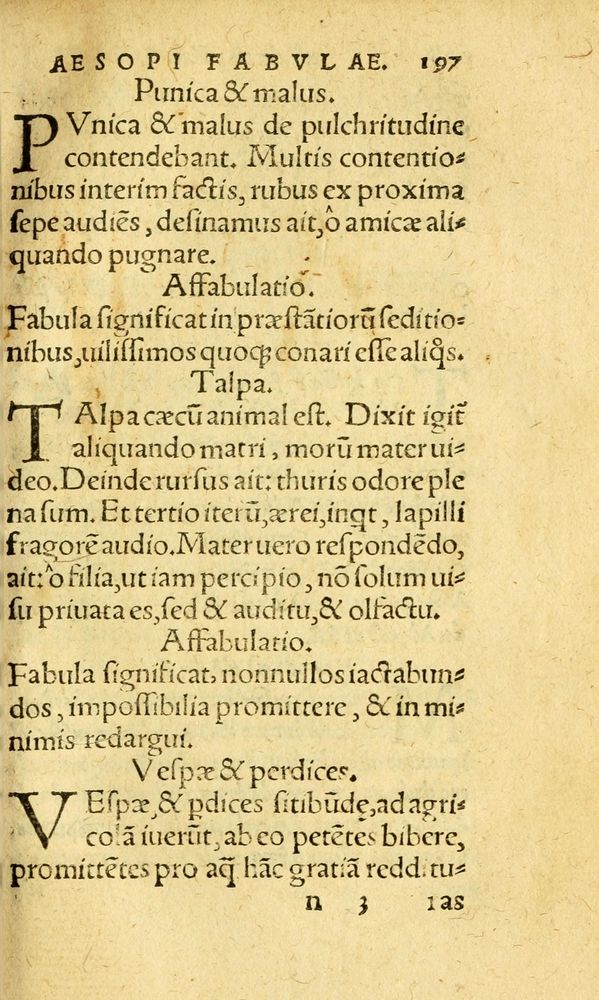 AESOPI FABVLAE. 197
Punica & malus.
PVnica & malus de pulchritudine
contendebant. Multis contentio-
nibus interim factis, rubus ex proxima
sepe audiẽs, desinamus ait, ô amicæ ali-
quando pugnare.
Affabulatio.
Fabula significat in præstãtiorũ seditio-
nibus, uilissimos quoqꝫ conari esse aliq̃s.
Talpa.
TAlpa cæcũ animal est. Dixit igit᷑
aliquando matri, morũ mater ui-
deo. Deinde rursus ait: thuris odore ple
na sum. Et tertio iterũ, ærei, inqt, lapilli
fragorẽ audio. Mater uero respondẽdo,
ait: ô filia, ut iam percipio, nõ solum ui-
su priuata es, sed & auditu, & olfactu.
Affabulatio.
Fabula significat, nonnullos iactabun-
dos, impossibilia promittere, & in mi-
nimis redargui.
Vespæ & perdices.
VEspæ, & ꝑdices sitibũde, ad agri-
colã iuerũt, ab eo petẽtes bibere,
promittẽtes pro aq̃ hãc gratiã redditu-
n 3 ras